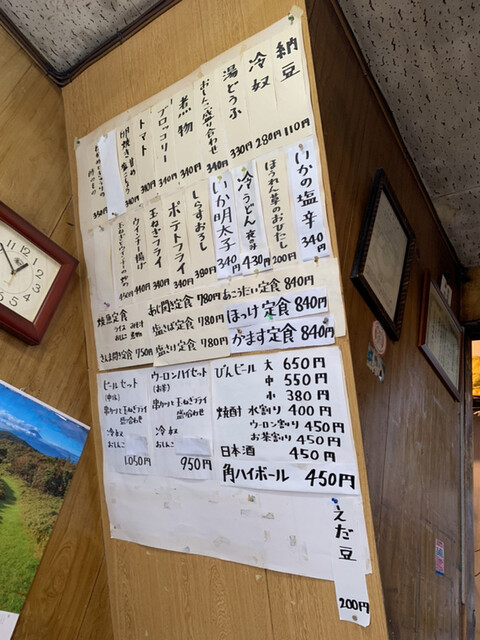 納豆 110円
冷奴 280円
湯どうふ 330円
おしんこ盛り合わせ 340円
煮物 340円
ブロッコリー 340円
トマト
いかの塩辛 340円
ほうれん草のおひたし 200円
冷うどん 430円
いか明太子 340円
しらすおろし 380円
ポテトフライ 340円
玉ねぎフライ 340円
ウインナー揚げ 440円
焼魚定食
ライス みそ汁
おしんこ 煮物
さんま開き定食 750円
あじ開き定食 780円
塩さば定食 780円
塩さけ定食 780円
あこうだい定食 840円
ほっけ定食 840円
かます定食 840円
ビールセット
(中ビン)
串カツと玉ねぎフライ
盛り合わせ
冷奴
おしんこ
1,050円
ウーロンハイセット
(お茶)
串カツと玉ねぎフライ
盛り合わせ
冷奴
おしんこ
950円
びんビール 大 650円
中 550円
小 380円
焼酎 水割り 400円
ウーロン割り 450円
お茶割り 450円
日本酒 450円
角ハイボール 450円
えだ豆 200円